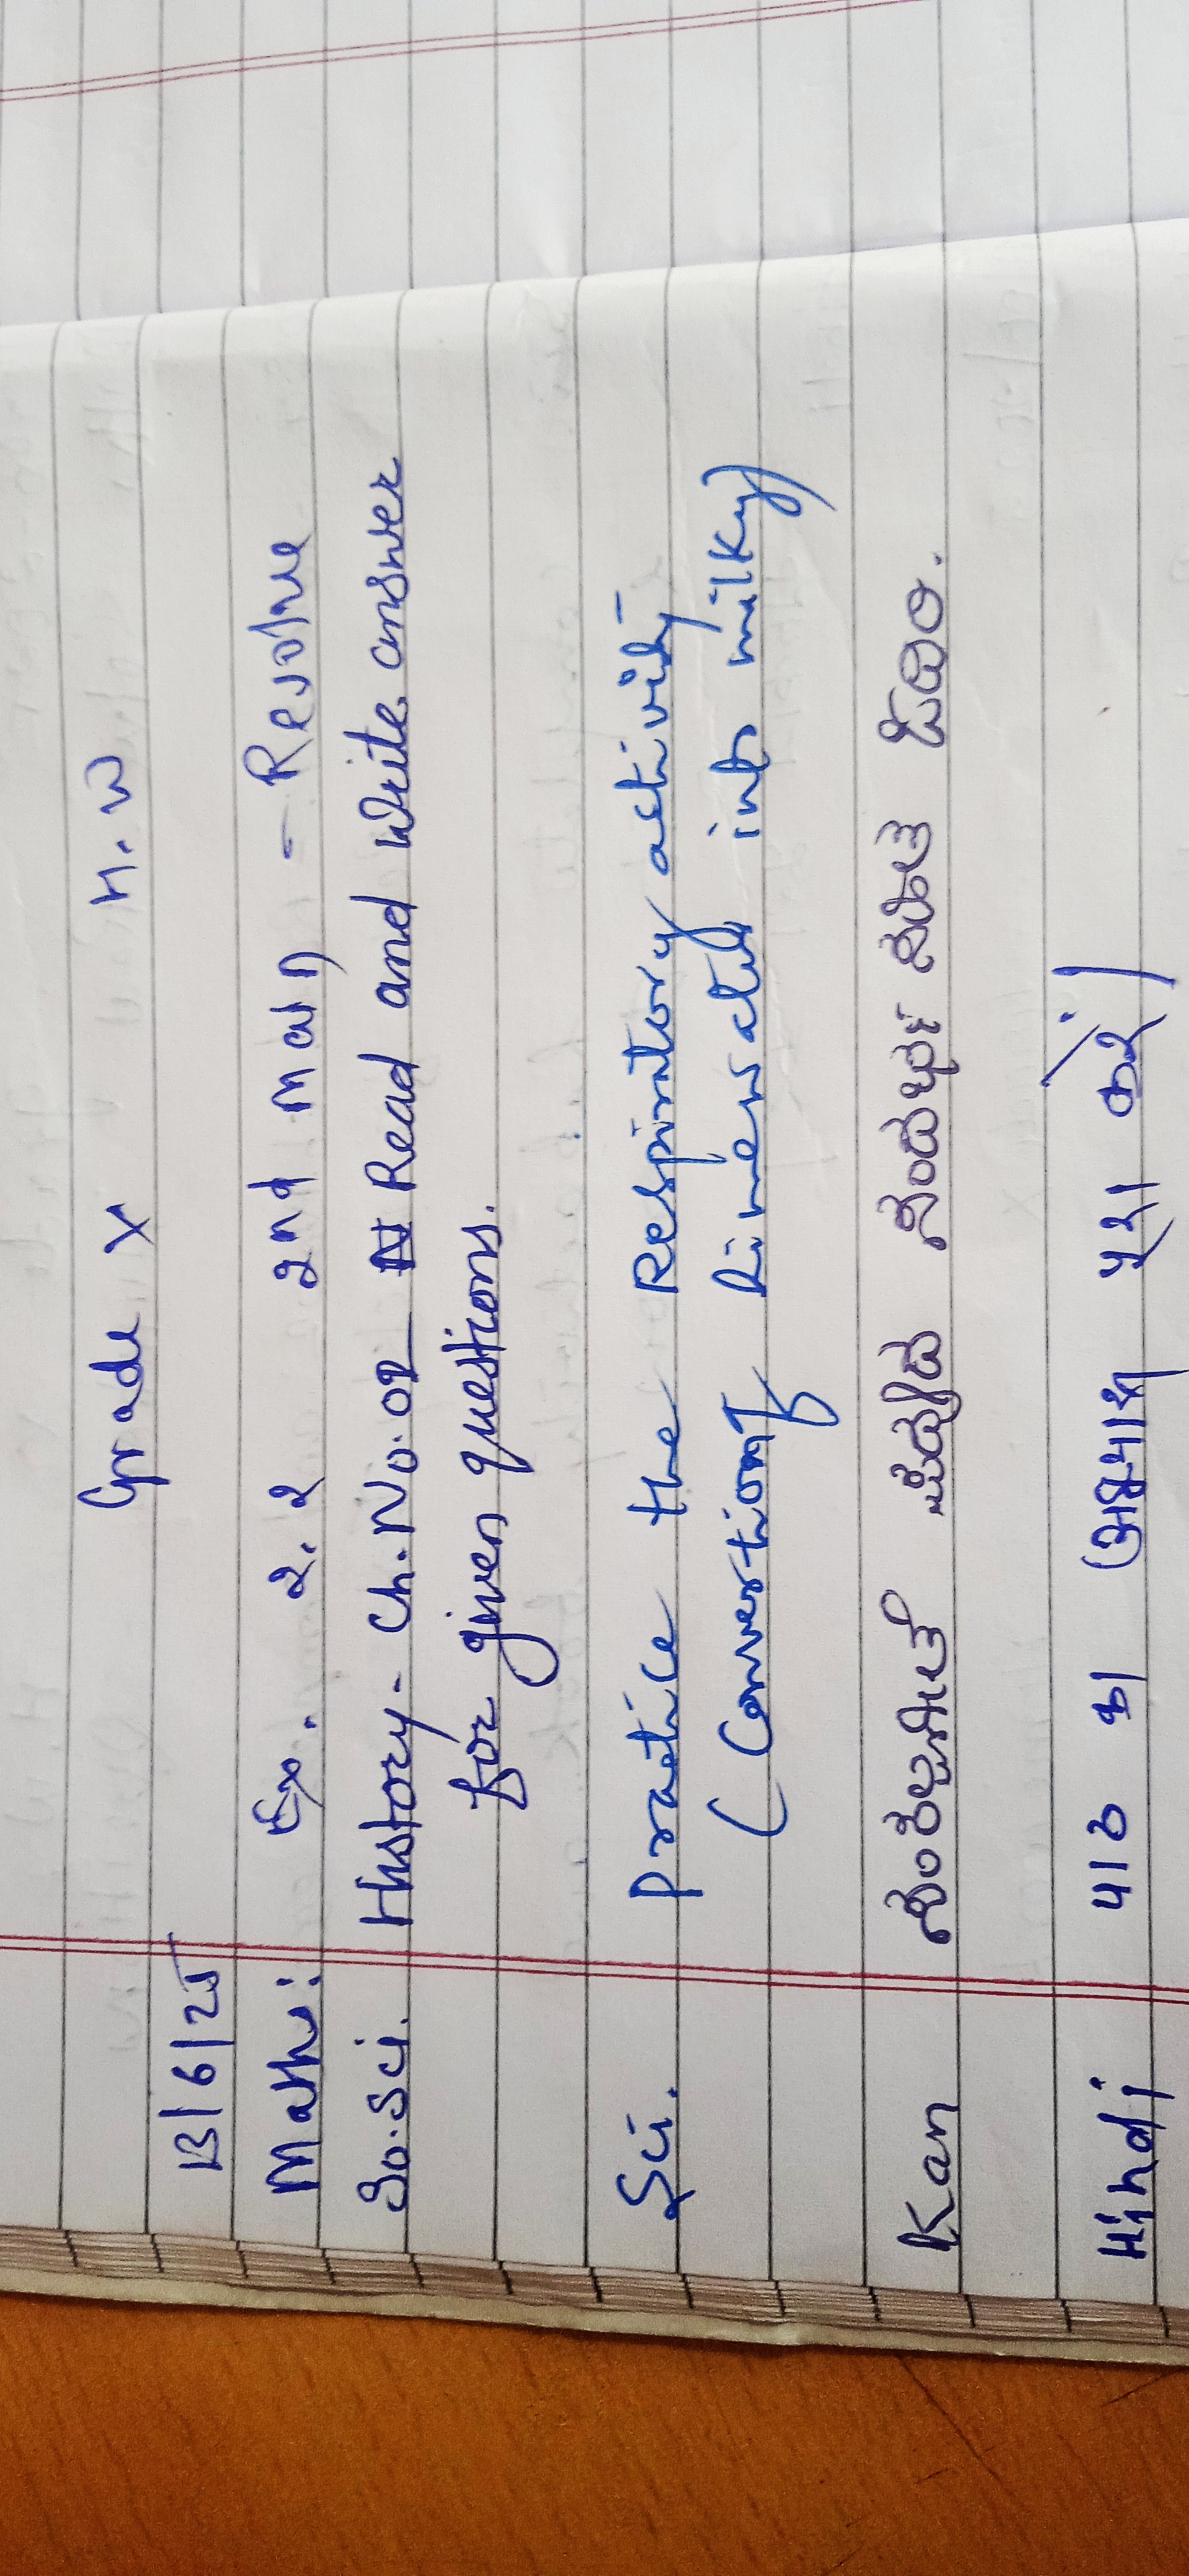 Grade X H.W
13/6/25
Maths: Ex. 2.2 2nd main - Resolve
So.Sci. History - Ch.No.02 Read and write answer
for given questions.
Sci. Practice the Respiratory activity
(Convertion of limewater into milky)
Kan ಸಂಕಲ್ಪಗೀತೆ ಪದ್ಯದ ಸಂದರ್ಭ ಸಹಿತ ಓದಿರಿ.
Hindi पाठ का अभ्यास पूरा करें।